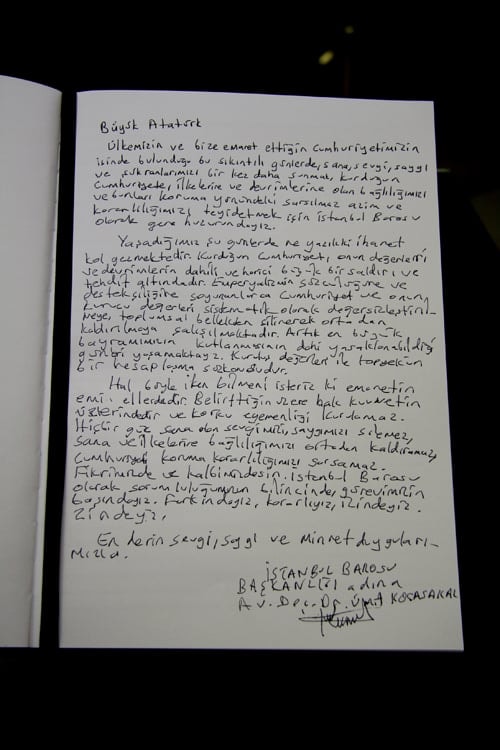 Büyük Atatürk
Ülkemizin ve bize emanet ettiğin Cumhuriyetimizin
içinde bulunduğu bu sıkıntılı günlerde, sana, sevgi, saygı
ve şükranlarımızı bir kez daha sunmak, kurduğun
Cumhuriyete, ilkelerine ve devrimlerine olan bağlılığımızı
ve bunları koruma yönündeki sarsılmaz azim ve
kararlılığımızı teyidetmek için İstanbul Barosu
olarak gene huzurundayız.
Yaşadığımız şu günlerde ne yazıkki ihanet
kol gezmektedir. Kurduğun Cumhuriyet, onun değerleri
ve devrimlerin dahili ve harici büyük bir saldırı ve
tehdit altındadır. Emperyalizmin sözcülüğüne ve
destekçiliğine soyunanlarca Cumhuriyet ve onun
kurucu değerleri sistematik olarak değersizleştiril-
meye, toplumsal bellekten silinerek ortadan
kaldırılmaya çalışılmaktadır. Artık en büyük
bayramımızın kutlanmasının dahi yasaklanabildiği
günleri yaşamaktayız. Kuruluş değerleri ile topyekün
bir hesaplaşma sözkonusudur.
Hal böyle iken bilmeni isteriz ki emanetin
emin ellerdedir. Belirttiğin üzere hiçbir kuvvetin
üzerindedir ve korku egemenliği kurulamaz.
Hiçbir güç sana olan sevgimizi, saygımızı silemez,
sana ve ilkelerine bağlılığımızı ortadan kaldıramaz,
Cumhuriyeti koruma kararlılığımızı sarsamaz.
Fikrimizde ve kalbimizdesin. İstanbul Barosu
olarak sorumluluğumuzun bilincinde, görevimizin
başındayız. Farkındayız, kararlıyız, izindeyiz.
Zindeyiz,
En derin sevgi, saygı ve minnet duyguları-
mızla.
İSTANBUL BAROSU
BAŞKANLIĞI adına
Av. Doç. Dr. Ümit KOCASAKAL